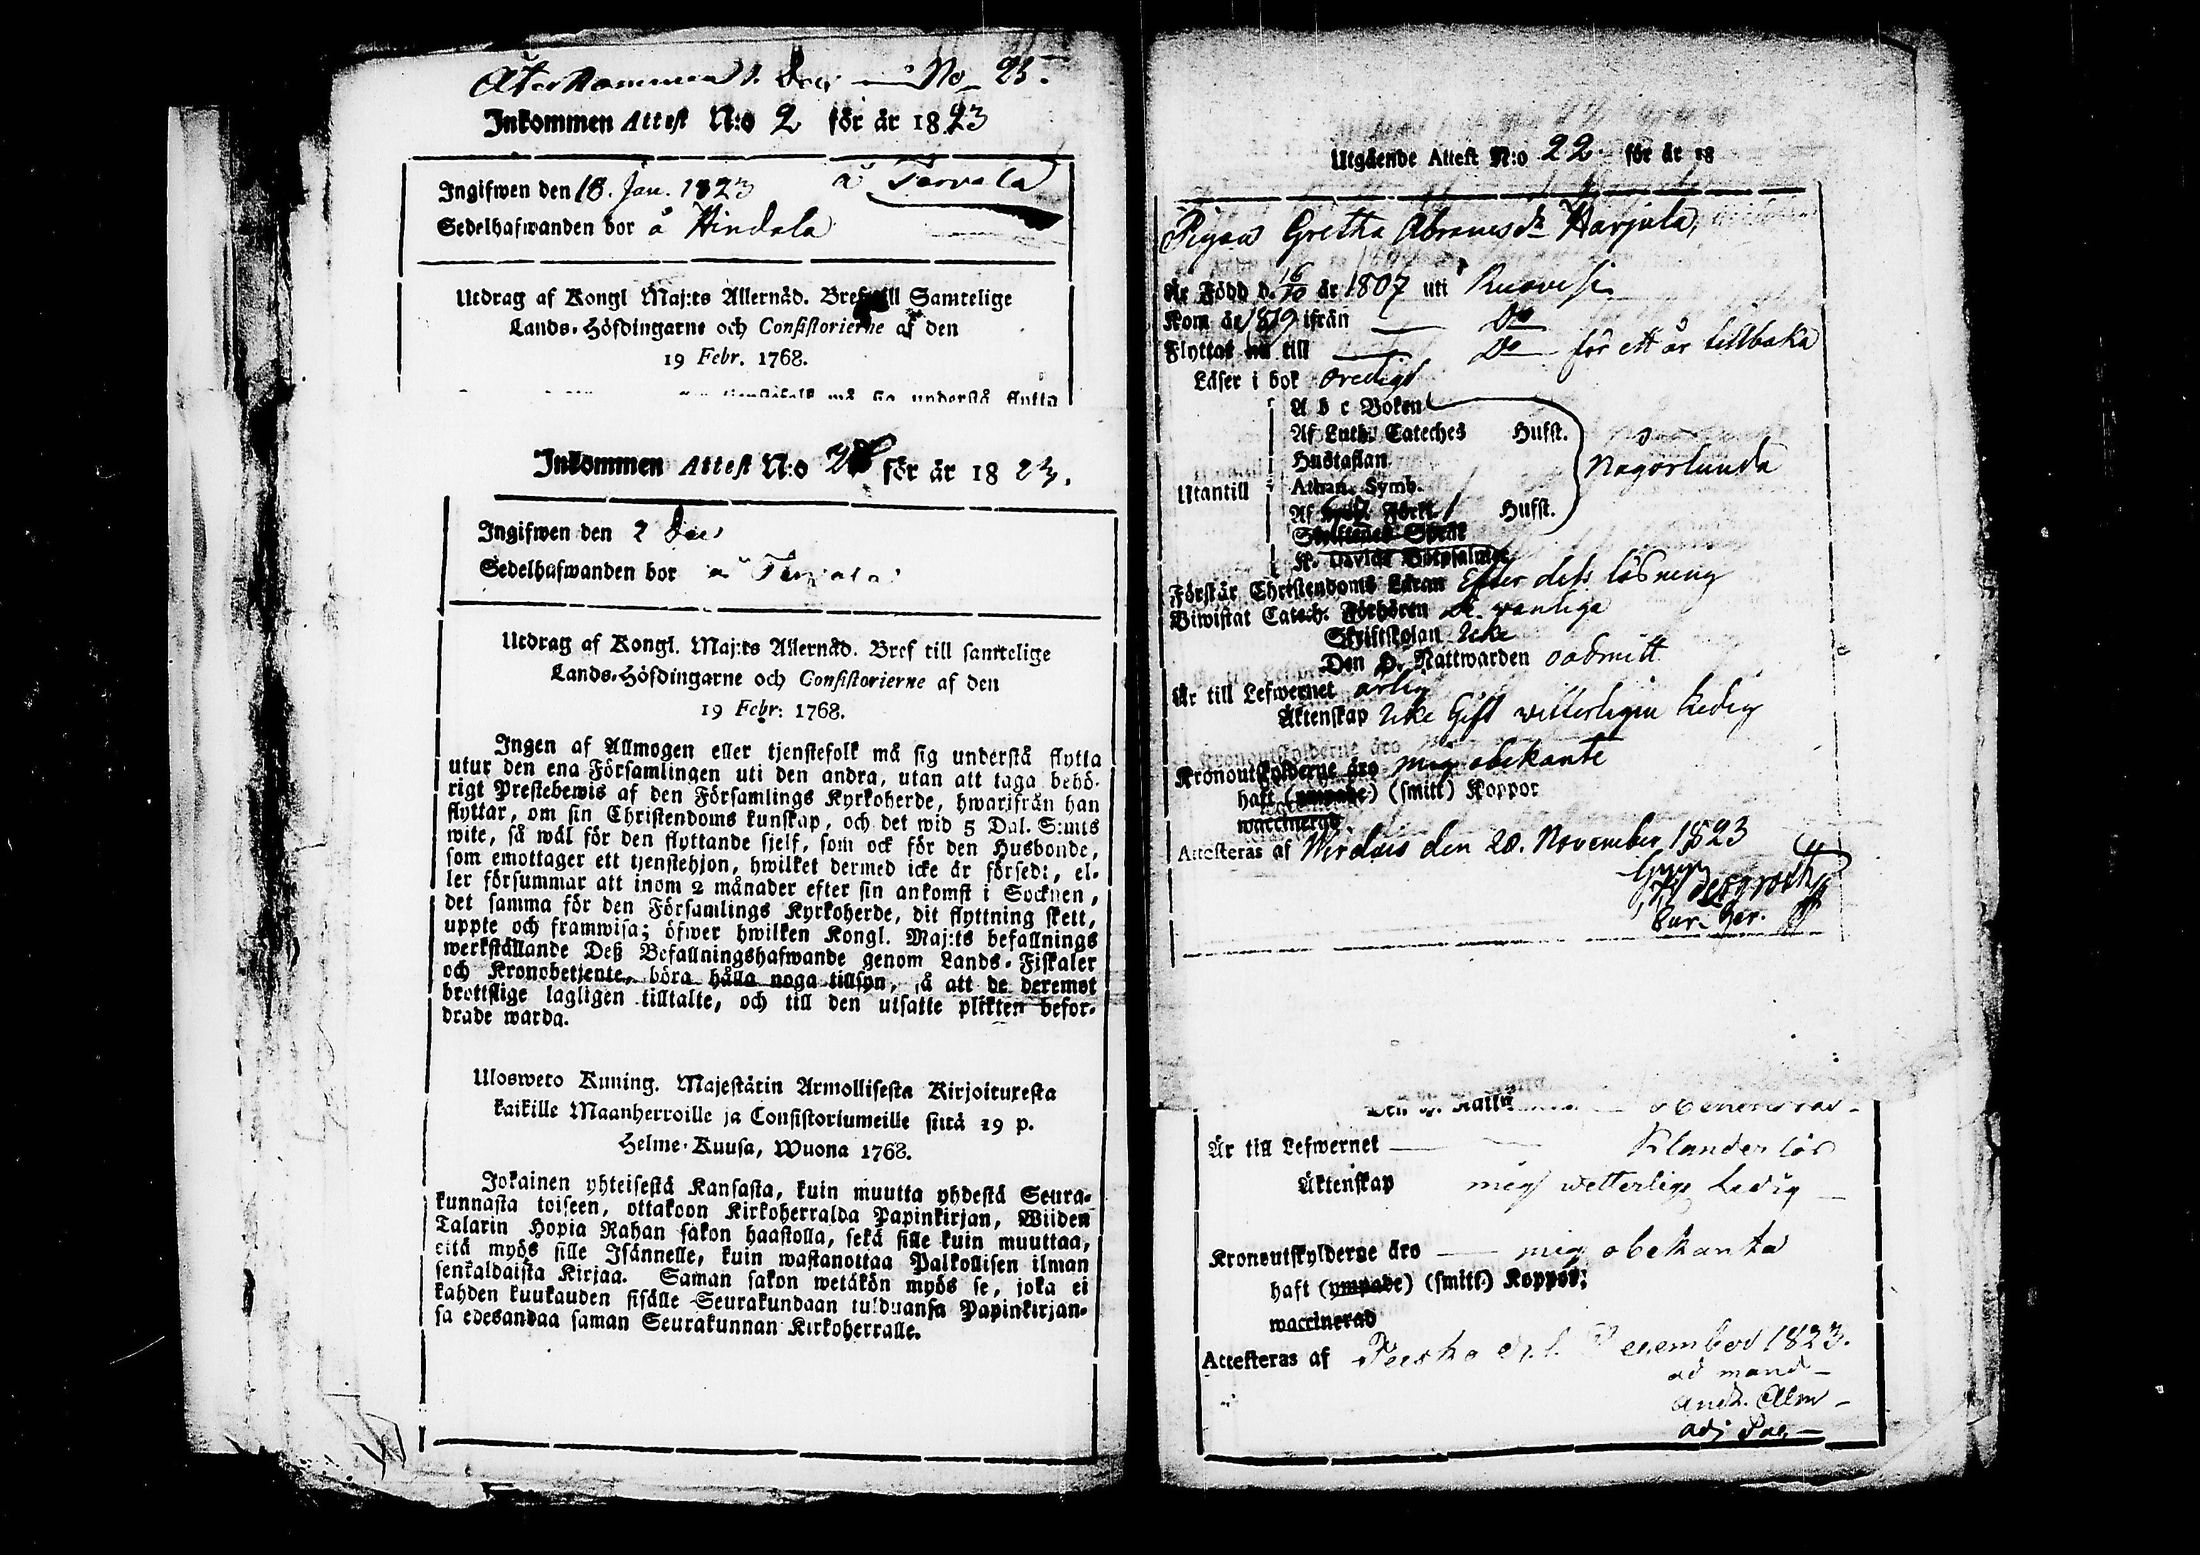 Återkommen d. Dec. — No 25.
Inkommen Attest N:o 2 för år 1823
Ingifwen den 18. Jan. 1823 å Tarvala
Sedelhafwanden bor å Hindala
Utdrag af Kongl Maj:ts Allernåd. Bref till Samtelige
Lands-Höfdingarne och Consistorierne af den
19 Febr. 1768.
tjenstefolk må sig understå flytta
Inkommen Attest N:o för år 1823.
Ingifwen den 2 Dec
Sedelhafwanden bor å
Utdrag af Kongl. Maj:ts Allernåd. Bref till samtelige
Lands-Höfdingarne och Consistorierne af den
19 Febr: 1768.
Ingen af Allmogen eller tjenstefolk må sig understå flytta
utur den ena Församlingen uti den andra, utan att taga behö-
rigt Prestebewis af den Församlings Kyrkoherde, hwarifrån han
flyttar, om sin Christendoms kunskap, och det wid 5 Dal. S:mts
wite, så wäl för den flyttande sjelf, som ock för den Husbonde,
som emottager ett tjenstehjon, hwilket dermed icke är försedt, el-
ler försummar att inom 2 månader efter sin ankomst i Socknen,
det samma för den Församlings Kyrkoherde, dit flyttning skett,
uppte och framwisa; öfwer hwilken Kongl. Maj:ts befallnings
werkställande Deß Befallningshafwande genom Lands-Fiskaler
och Kronobetjente, böra hålla noga tillsyn, så att de deremot
brottslige lagligen tilltalte, och till den utsatte plikten befor-
drade warda.
Ulosweto Kuning. Majestätin Armollisesta Kirjoituxesta
kaikille Maanherroille ja Consistoriumeille siitä 19 p.
Helme-Kuusa, Wuona 1768.
Jokainen yhteisestä Kansasta, kuin muutta yhdestä Seura-
kunnasta toiseen, ottakoon Kirkoherralda Papinkirjan, Wiiden
Talarin Hopia Rahan sakon haastolla, sekä sille kuin muuttaa,
että myös sille Isännelle, kuin wastanottaa Palkollisen ilman
senkaldaista Kirjaa. Saman sakon wetäkön myös se, joka ei
kahden kuukauden sisälle Seurakundaan tulduansa Papinkirjan-
sa edesandaa saman Seurakunnan Kirkoherralle.
Utgående Attest N:o 22 för år 18
Pigan Gretha Abramsdr Harjula,
Är Född d. 16/10 år 1807 uti Ruovesi
Kom år 1819 ifrån — Do
Flyttat nu till — Do — för ett år tillbaka
Läser i bok oredigt
A b c Boken
Af Luth. Cateches Hufst.
Hustaflan
Någorlunda
Utantill
Athan. Symb.
Af Förkl. Hufst.
Skriftenes Språk
K. Davids Botpsalmer
Förstår Christendoms Läran Efter dess läsning
Biwistat Catech. Förhören de vanliga
Skriftskolan Icke
Den H. Nattwarden oadmitt
Är till Lefwernet ärlig
Äktenskap Icke Gift witterligen Ledig
Kronoutskylderne äro mig obekante
haft (ympade) (smitt) Koppor
waccinerad.
Attesteras af Wirdois den 28. November 1823
Den H. Nattw
Är till Lefwernet — Klanderlös
Äktenskap mig wetterligt Ledig —
Kronoutskylderne äro — mig obekanta
haft (ympade) (smitt.) Koppor;
waccinerad
Attesteras af d. 1. December 1823.
ad mand —
And. Alm —
adj Pas. —